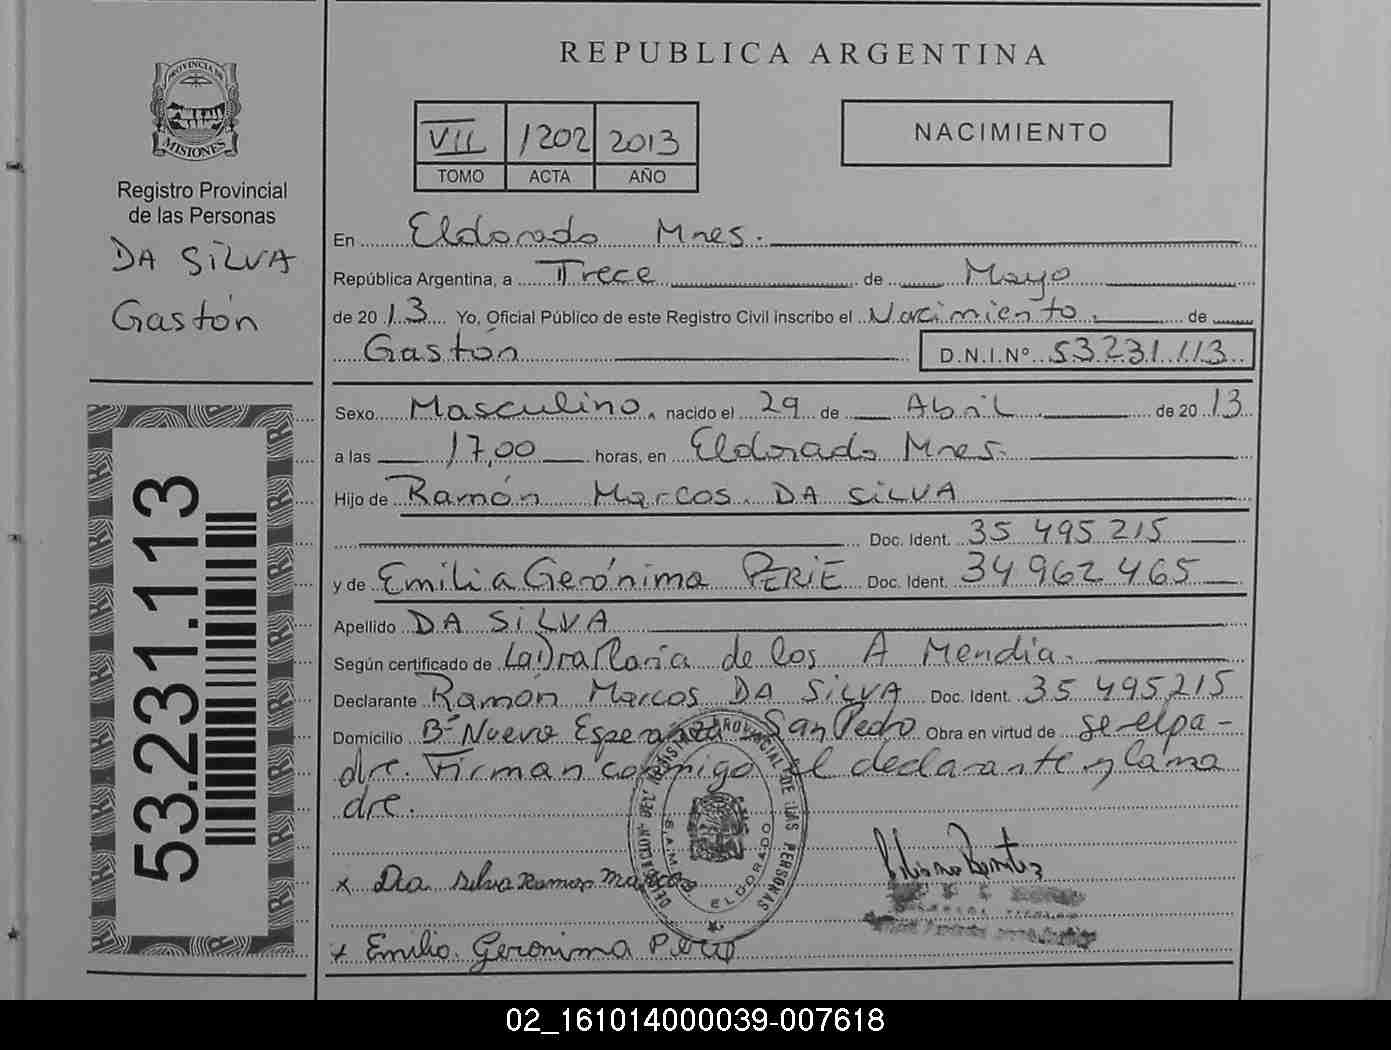 REPUBLICA ARGENTINA
PROVINCIA DE
MISIONES
Registro Provincial
de las Personas
DA SILVA
Gastón
53.231.113
VII 1202 2013
TOMO ACTA AÑO
NACIMIENTO
En Eldorado Mnes.
República Argentina, a Trece de Mayo
de 2013 Yo, Oficial Público de este Registro Civil inscribo el Nacimiento. de
Gastón D.N.I.Nº 53231113
Sexo Masculino, nacido el 29 de Abril de 2013
a las 17,00 horas, en Eldorado Mnes.
Hijo de Ramón Marcos DA SILVA
Doc. Ident. 35 495 215
y de Emilia Gerónima PERIE Doc. Ident. 34 962 465
Apellido DA SILVA
Según certificado de La Dra María de los A Mendia.
Declarante Ramón Marcos DA SILVA Doc. Ident. 35 495215
Domicilio Bº Nuevo Esperanza San Pedro Obra en virtud de se el pa-
dre. Firman conmigo el declarante y la ma
dre.
DELEGACION DEL REGISTRO PROVINCIAL DE LAS PERSONAS
ELDORADO
x Da Silva Ramon Marcos
x Emilia Geronima Perie
02_161014000039-007618